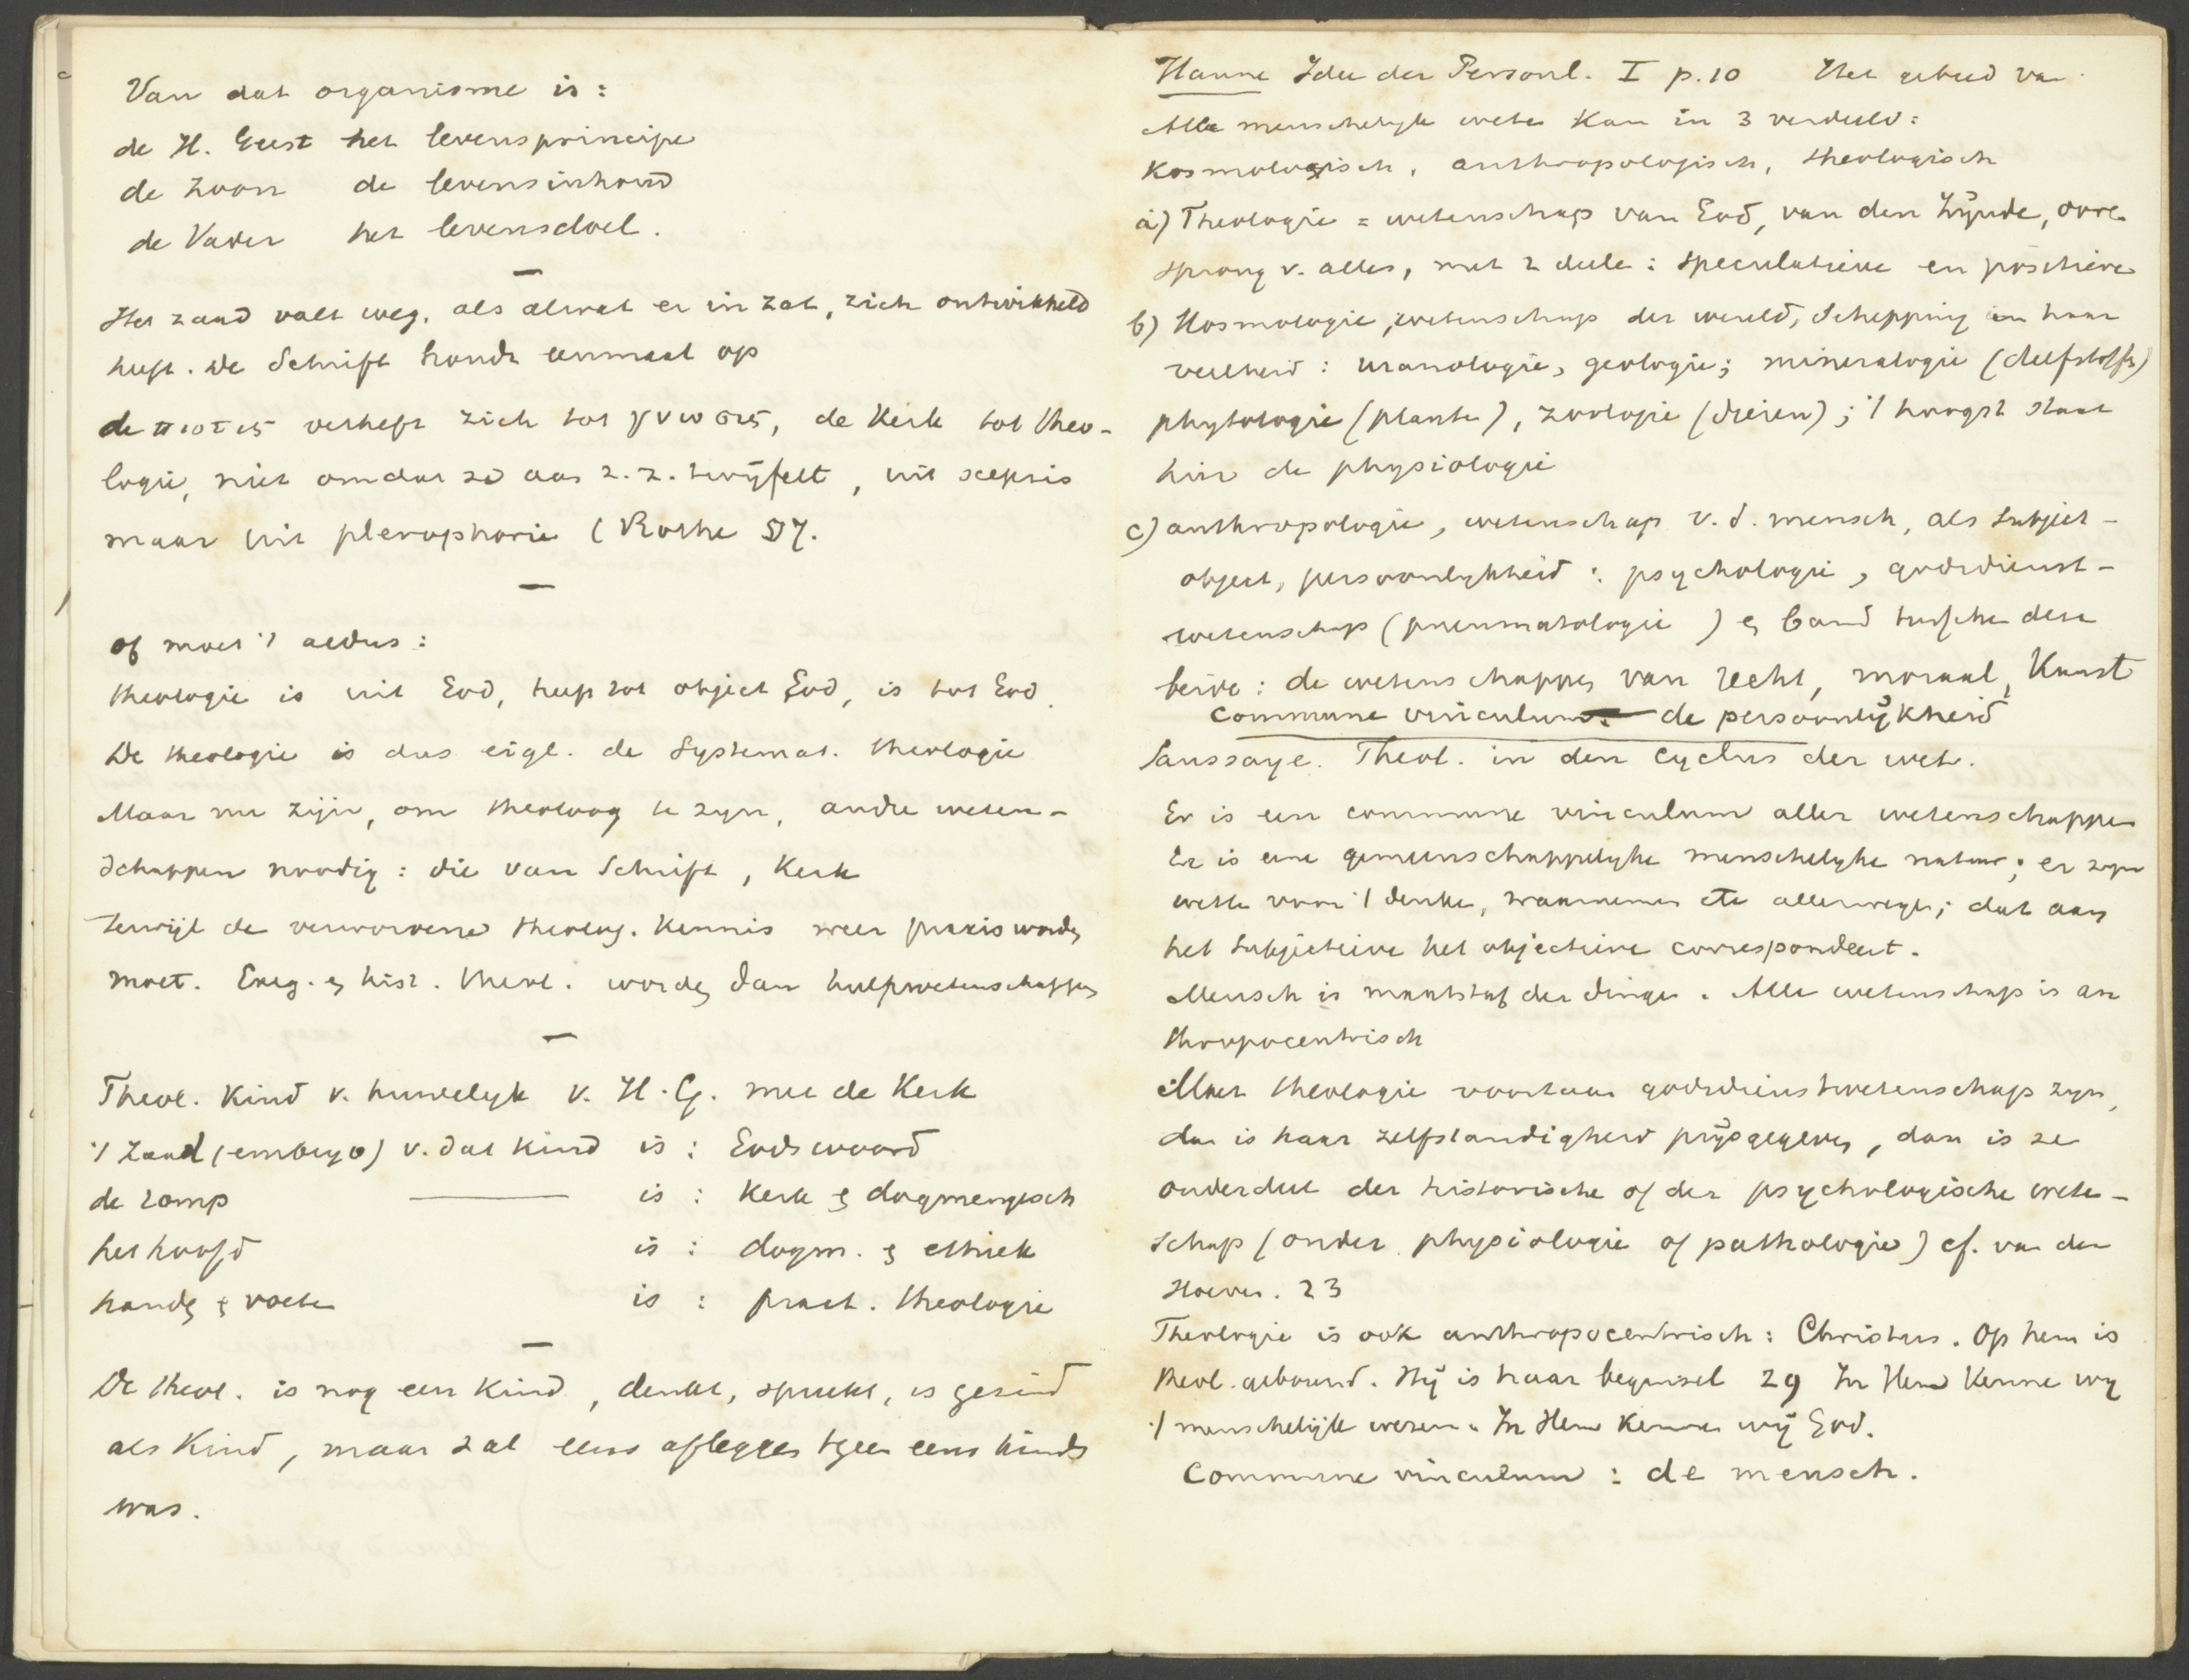 Van dat organisme is:
de H. Geest het levensprincipe
de Zoon de levensinhoud
de Vader het levensdoel.
Het zaad valt weg, als alwat er in zat, zich ontwikkeld
heeft. De Schrift houdt eenmaal op
de πιστις verheft zich tot γνωσις, de Kerk tot theo-
logie, niet omdat ze aan z. z. twijfelt, uit scepsis
maar uit plerophorie (Rothe 57.
of moet 't aldus:
theologie is uit God, heeft tot object God, is tot God.
De theologie is dus eigl. de Systemat. theologie
Maar nu zijn, om theoloog te zyn, andre weten-
schappen noodig: die van Schrift, Kerk
terwijl de verworvene theolog. kennis weer praxis worden
moet. Exeg. en hist. theol. worden dan hulpwetenschappen
Theol. Kind v. huwelyk v. H. G. met de Kerk
't Zaad (embryo) v. dat Kind is: Gods woord
de romp is: Kerk en dogmengesch
het hoofd is: dogm. en ethiek
handen en voeten is: pract. theologie
De theol. is nog een Kind, denkt, spreekt, is gezind
als Kind, maar zal eens afleggen tgeen eens kinds
was.
Hanne Idee der Persönl. I p. 10 Het gebied van
Alle menschelyk weten kan in 3 verdeeld:
Kosmologisch, anthropologisch, theologisch
a) Theologie = wetenschap van God, van den Zijnde, oor-
sprong v. alles, met 2 deelen: speculatieve en positieve
b) Kosmologie, wetenschap der wereld, Schepping in haar
veelheid: uranologie, geologie; mineralogie (delfstoffen)
phytologie (planten), zoologie (dieren); 't hoogst staat
hier de physiologie
c) anthropologie, wetenschap v. d. mensch, als subject-
object, persoonlykheid: psychologie, godsdienst-
wetenschap (pneumatologie) en band tusschen deze
beide: de wetenschappen van recht, moraal, Kunst
Commune vinculum de persoonlijkheid
Saussaye. Theol. in den Cyclus der wet.
Er is een commune vinculum aller wetenschappen
Er is eene gemeenschappelyke menschelyke natuur; er zyn
wetten voor 't denken, waarnemen etc allerwegen; dat aan
het subjectieve het objectieve correspondeert.
Mensch is maatstaf der dingen. Alle wetenschap is an
thropocentrisch
Moet theologie voortaan godsdienstwetenschap zyn,
dan is haar zelfstandigheid prijsgegeven, dan is ze
onderdeel der historische of der psychologische weten-
schap (onder physiologie of pathologie) cf. van der
Hoeven. 23
Theologie is ook anthropocentrisch: Christus. Op hem is
theol. gebouwd. Hij is haar beginsel 29 In Hem Kennen wy
't menschelijk wezen. In Hem Kennen wij God.
Commune vinculum: de mensch.